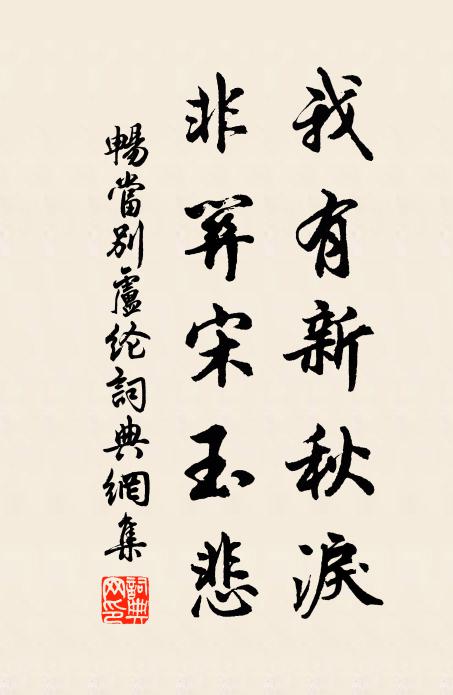 我有新秋淚
非關宋玉悲
暢當別盧纶詞典網集
詞典网印